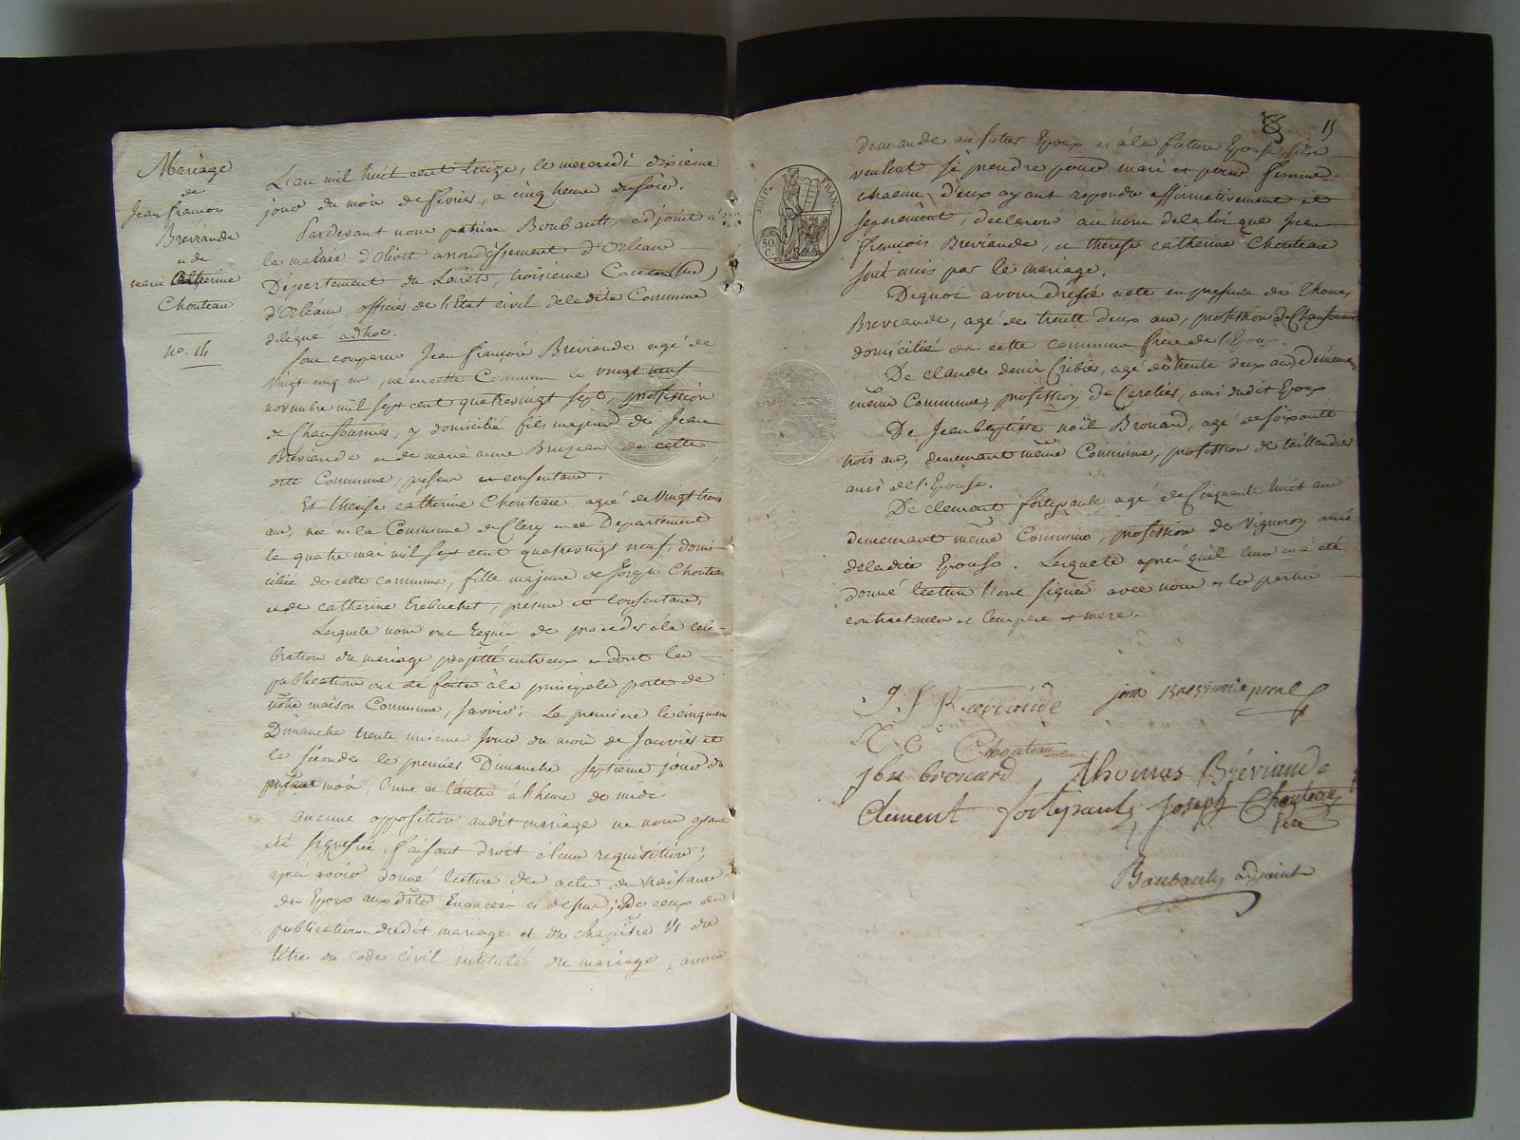 Mariage
de
Jean françois
Breviande
et de
marie Catherine
Chouteau
no. 14
L'an mil huit cent treize, le mercredi dixieme
jour du mois de février, a cinq heure du soir.
Pardevant nous patrice Boubault, adjoint a
la mairie d'olivet arrondissement d'Orleans
Département du Loiret, troisieme Canton
d'Orléans, officier de l'Etat civil de ladite Commune
délégué adhoc.
Sont comparus Jean françois Breviande agé de
vingt cinq ans, né en cette Commune le vingt neuf
novembre mil sept cent quatrevingt sept, profession
de Chaufournier, y domicilié fils majeur de Jean
Breviande et de marie anne de cette
dite Commune, present et consentant.
Et therese catherine Chouteau agée de vingt trois
ans, née en la Commune de Clery en ce Departement
le quatre mai mil sept cent quatrevingt neuf, domi-
ciliée de cette commune, fille majeure de Joseph Chouteau
et de catherine Trebuchet, présens et consentans,
Lesquels nous ont requis de proceder à la celé-
bration du mariage projetté entr'eux et dont les
publications ont été faites à la principale porte de
notre maison Commune, savoir: La premiere le
Dimanche trente unieme jour du mois de Janvier et
la seconde le premier Dimanche septieme jour du
présent mois, l'une et l'autre à l'heure de midi.
aucune opposition audit mariage ne nous ayant
été signifiée, faisant droit à leur requisition;
après avoir donné lecture des actes de naissance
des Epoux aux dates Enoncées ci dessus; De ceux des
publications dudit mariage et du chapitre VI du
titre du Code Civil intitulé du mariage, avons
15
demandé au futur Epoux et à la future Epouse s'ils
veulent se prendre pour mari et pour femme,
chacun d'eux ayant repondu affirmativement et
separement, declarons au nom de la loi que Jean
françois Breviande, et therese catherine Chouteau
sont unis par le mariage.
De quoi avons dressé acte en presence de Thomas
Breviande, agé de trente deux ans, profession de Chaufournier
domicilié en cette commune frere de l'Epoux.
De claude denis Cribier, agé de trente deux ans demeurant
même Commune, profession de Cerclier, ami dudit Epoux
De Jean baptiste noël Brouard, agé de soixante
trois ans, demeurant même Commune, profession de taillandier
ami de l'Epouse.
De clement fortepault agé de cinquante huit ans
demeurant même Commune, profession de Vigneron ami
de ladite Epouse. Lesquels après qu'il leur en a été
donné lecture l'ont signés avec nous et les parties
contractantes et leurs pere et mere.
J. f Breviande
T C Chouteau
jbn brouard Thomas Bréviande
Clément fortepault Joseph Chouteau
pere
Boubault adjoint